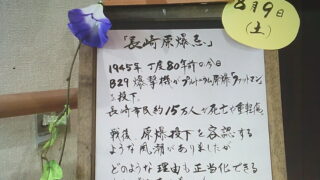 8月9日
(土)
「長崎原爆忌」
1945年 丁度80年前の今日
B29爆撃機がプルトニウム原爆「ファットマン」
を投下。
長崎市民約15万人が死亡や重軽傷
戦後 原爆投下を容認する
ような風潮がありましたが
どのような理由も正当化できる